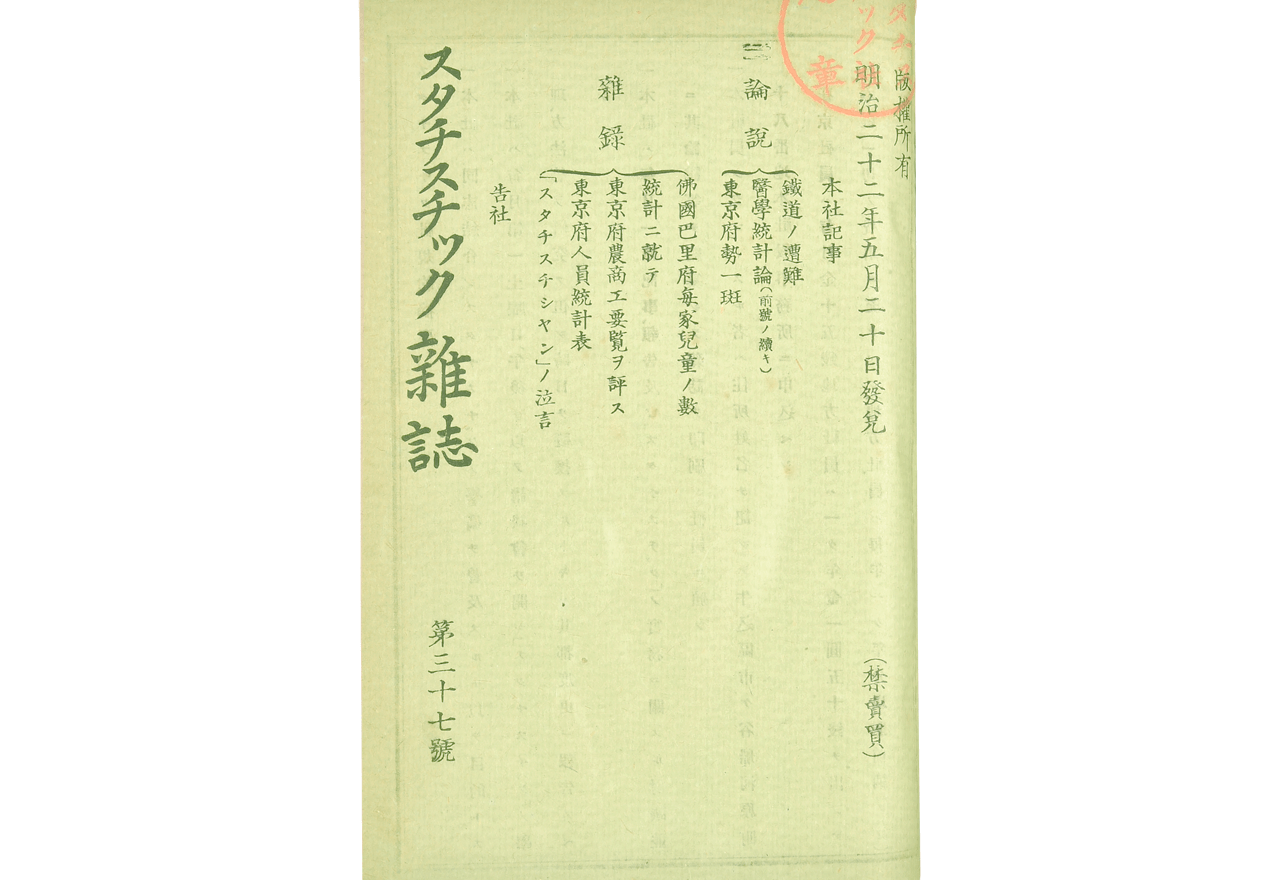 版權所有
明治二十二年五月二十日發兌
(禁賣買)
本社記事
論說
鐵道ノ遭難
醫學統計論(前號ノ續キ)
東京府勢一斑
雜錄
佛國巴里府每家兒童ノ數
統計ニ就テ
東京府農商工要覽ヲ評ス
東京府人員統計表
「スタチスチシヤン」ノ泣言
社告
スタチスチック雜誌
第三十七號